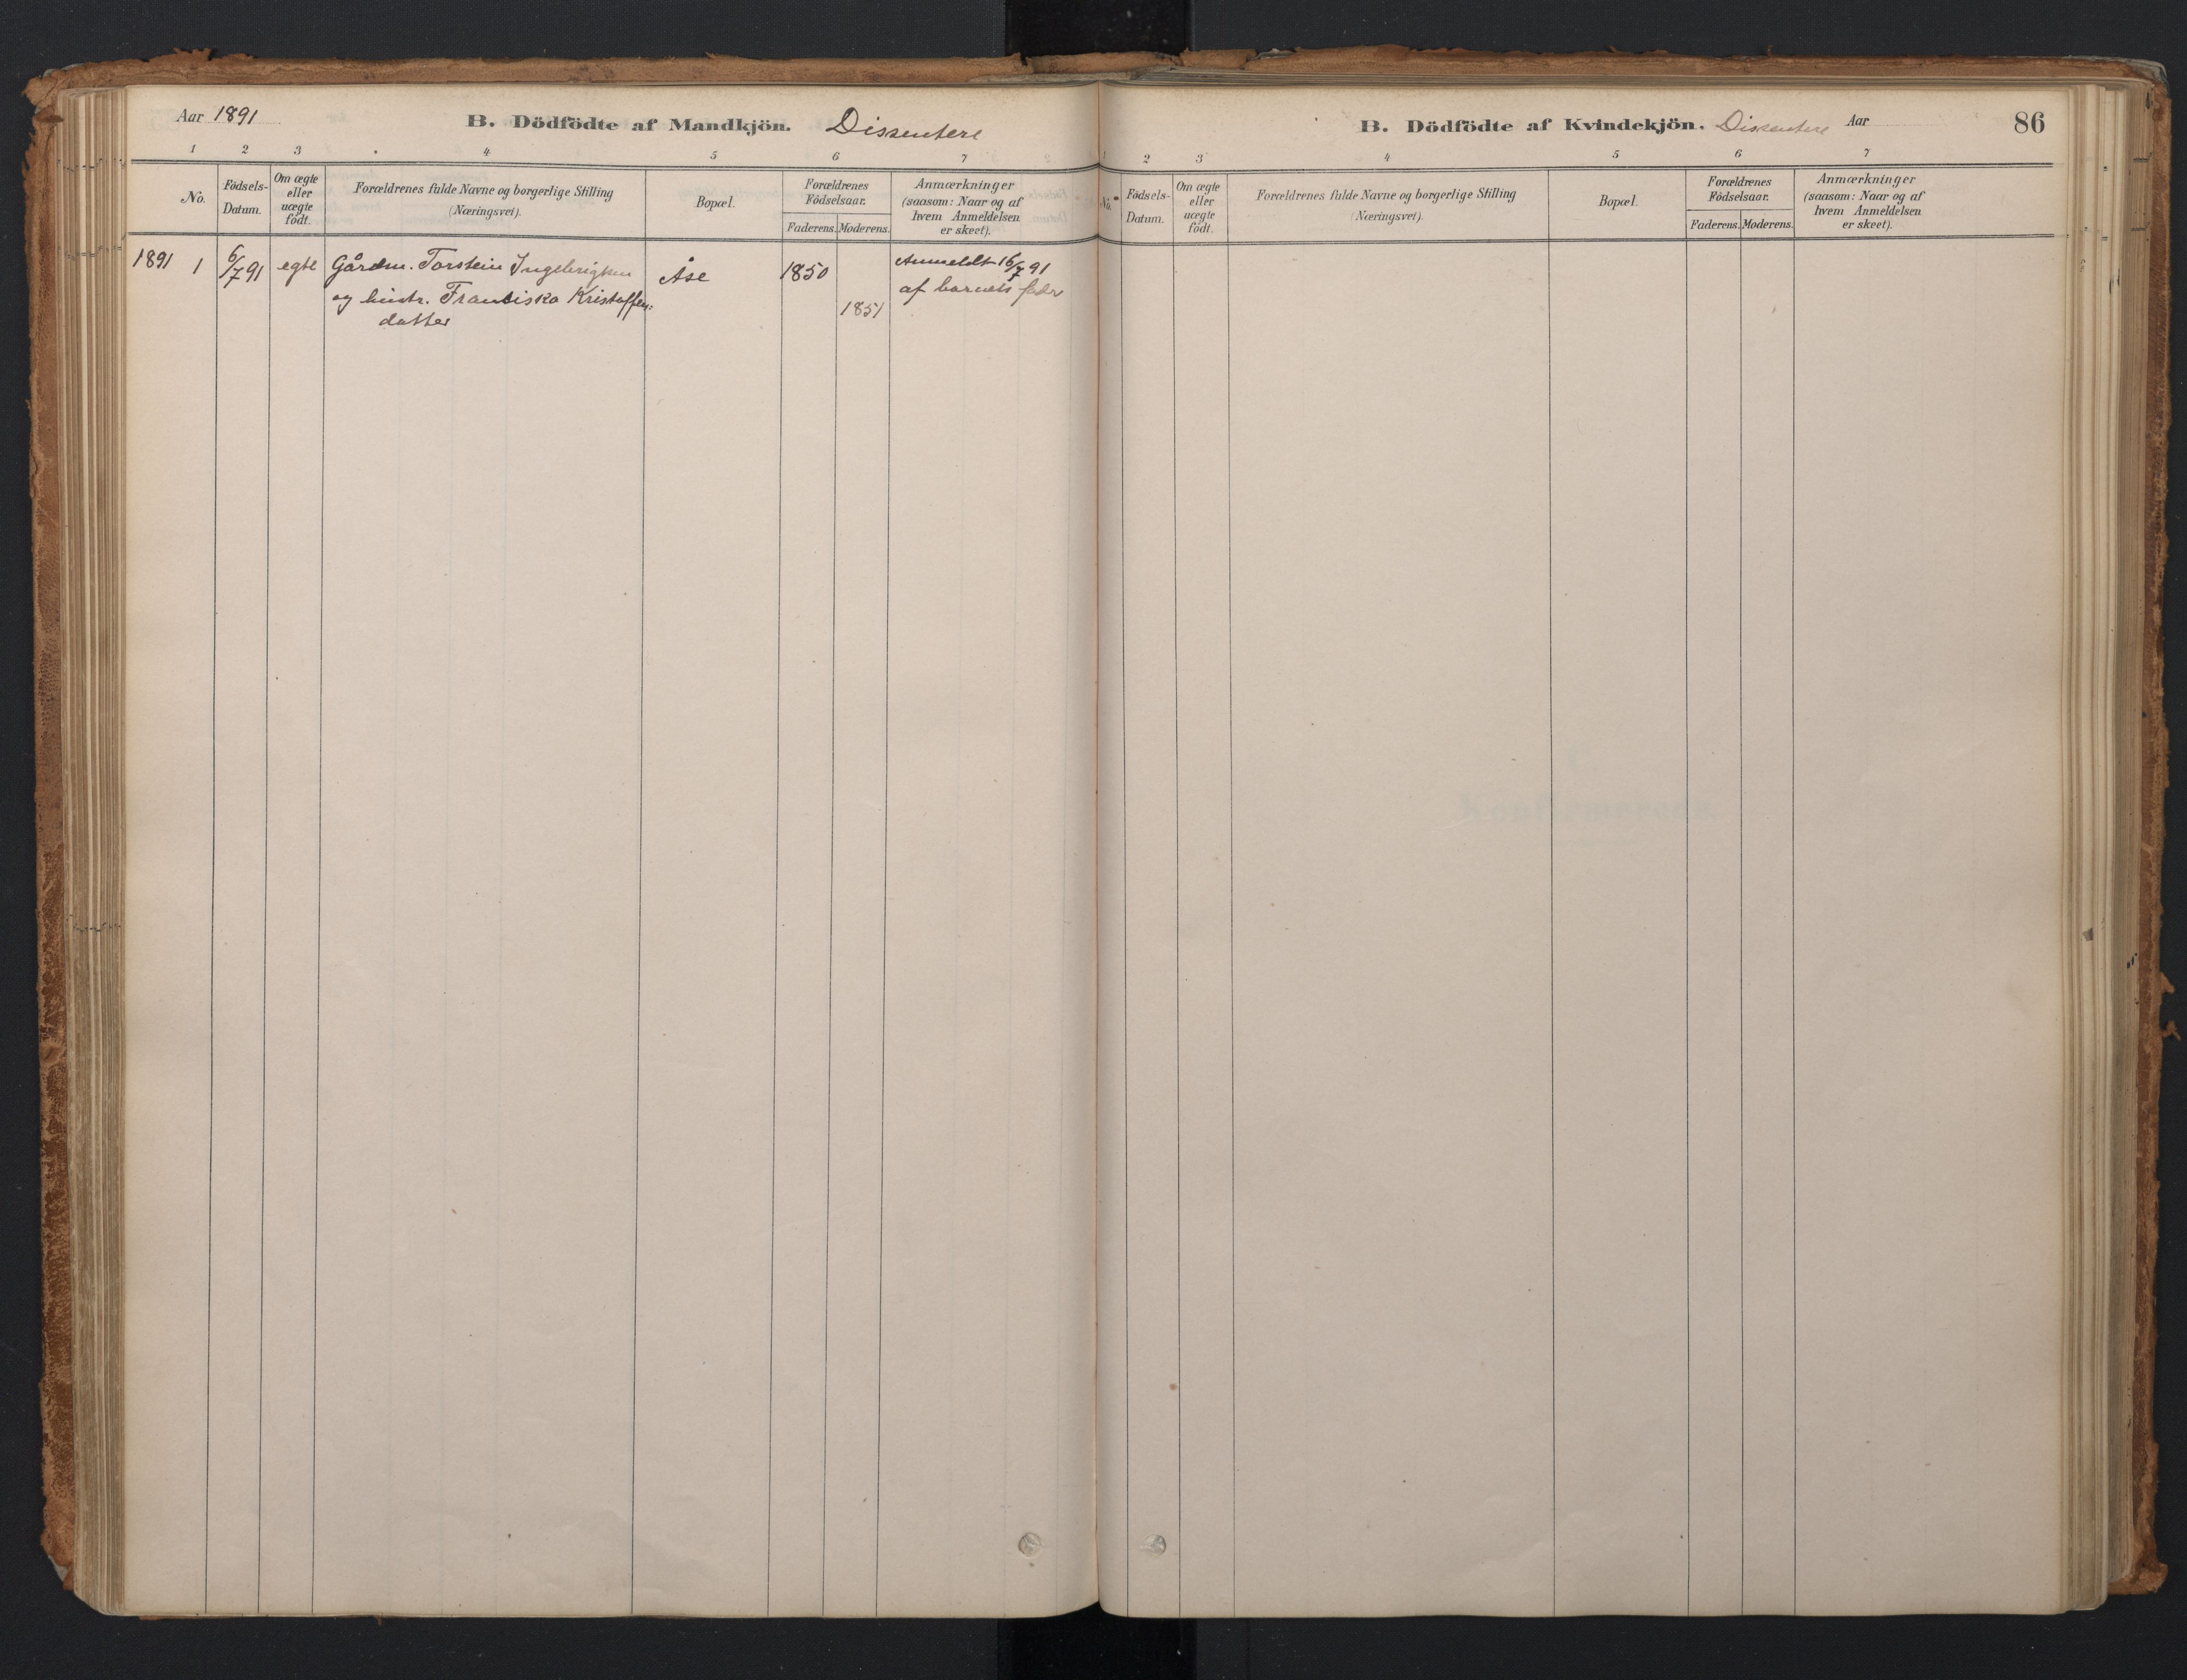 Aar 1891
B. Dödfödte af Mandkjön. Dissentere
1 2 3 4 5 6 7
No.
Födsels-
Datum.
Om ægte
eller
uægte
födt.
Forældrenes fulde Navne og borgerlige Stilling
(Næringsvei).
Bopæl.
Forældrenes
Födselsaar.
Faderens. Moderens.
Anmærkninger
(saasom: Naar og af
hvem Anmeldelsen
er skeet).
1891 1 6/7 91 egte Gårdm. Torstein Ingebrigtsen Åse 1850 Anmeldt 16/7 91
og hustr. Fransiska Kristoffers: 1851 af barnets fader
datter
B. Dödfödte af Kvindekjön. Dissentere Aar 86
1 2 3 4 5 6 7
No.
Födsels-
Datum.
Om ægte
eller
uægte
födt.
Forældrenes fulde Navne og borgerlige Stilling
(Næringsvei).
Bopæl.
Forældrenes
Födselsaar.
Faderens. Moderens.
Anmærkninger
(saasom: Naar og af
hvem Anmeldelsen
er skeet).